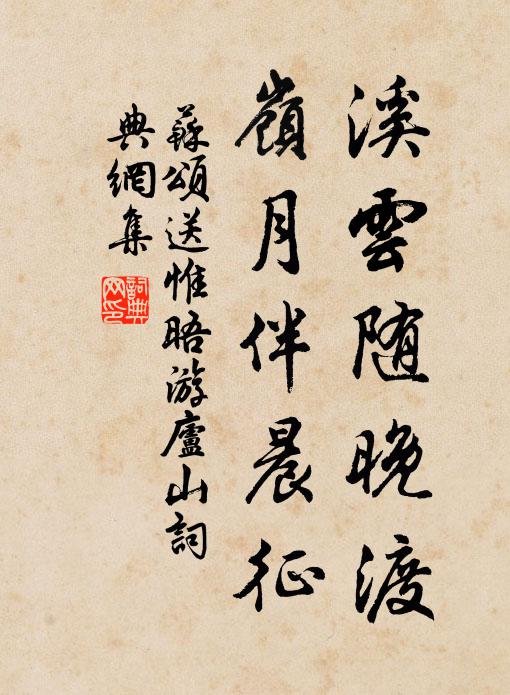 溪雲随晚渡
嶺月伴晨征
蘇頌送惟晤游廬山詞
典網集
詞典网印